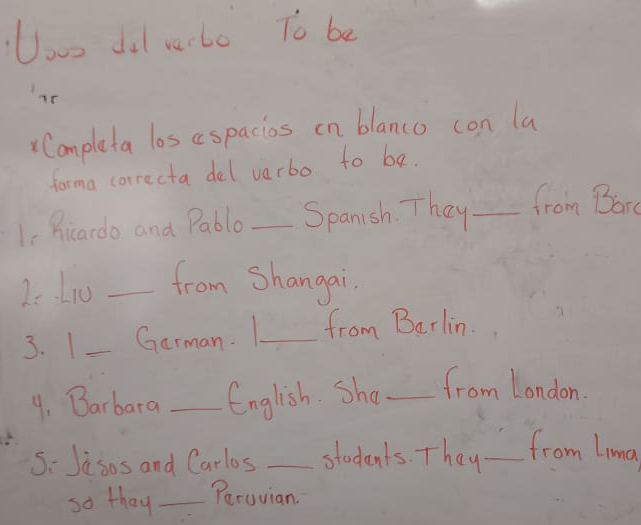 Usos del verbo To be
*Completa los espacios en blanco con la
forma correcta del verbo to be.
1. Ricardo and Pablo ___ Spanish. They ___ from Barc
2. Liu ___ from Shangai.
3. I ___ German. I ___ from Berlin.
4. Barbara ___ English. She ___ from London.
5. Jesos and Carlos ___ students. They ___ from Lima,
so they ___ Peruvian.